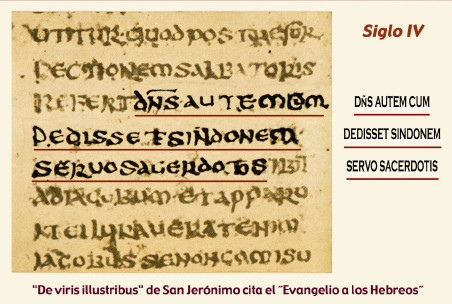 Siglo IV
UTITUR·QUOD POSTRESUR
RECTIONEM SALBATORIS
REFERT DN̄S·AUTEM CUM
DEDISSET SINDONEM
SERVO SACERDOTIS IBIT
AD IACOBUM ET APPARU
IACOBUS SE NON COMISU
DÑS AUTEM CUM
DEDISSET SINDONEM
SERVO SACERDOTIS
"De viris illustribus" de San Jerónimo cita el "Evangelio a los Hebreos"